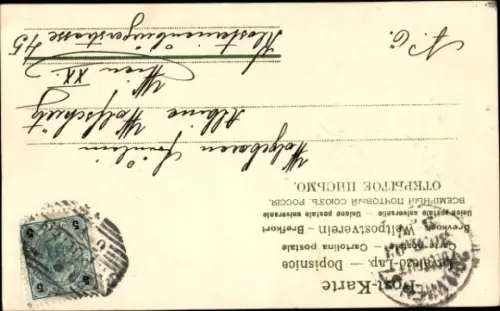 Post-Karte
Levelező-Lap. — Dopisnice
Carte postale — Cartolina postale
Brevkort — Weltpostverein — Brefkort
Union postale universelle — Unione postale universale
ВСЕМІРНЫЙ ПОЧТОВЫЙ СОЮЗЪ. РОССІЯ.
ОТКРЫТОЕ ПИСЬМО.
Wolgeboren Fräulein
Albine Wolfschütz
Wien XII.
Klosterneuburgerstrasse 45
N.Ö.
5 5
5 5
WIEN